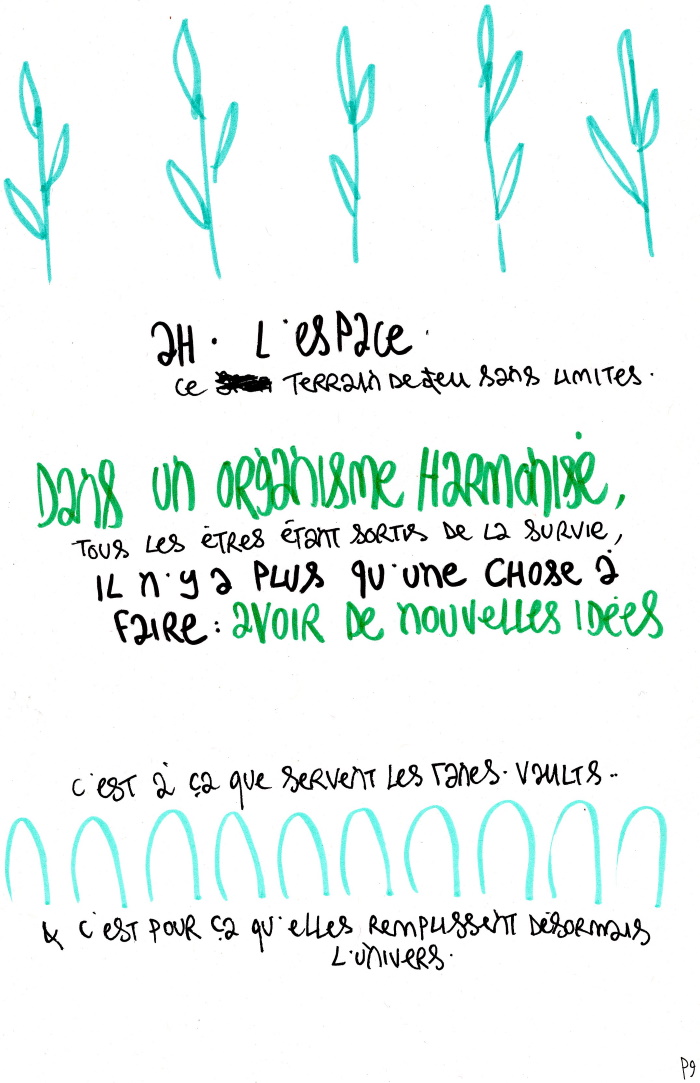 AH. L'ESPACE.
CE TERRAIN DE JEU SANS LIMITES.
DANS UN ORGANISME HARMONISÉ,
TOUS LES ÊTRES ÉTANT SORTIS DE LA SURVIE,
IL N'Y A PLUS QU'UNE CHOSE À
FAIRE: AVOIR DE NOUVELLES IDÉES
C'EST À ÇA QUE SERVENT LES VAULTS..
& C'EST POUR ÇA QU'ELLES REMPLISSENT DÉSORMAIS
L'UNIVERS.
P9